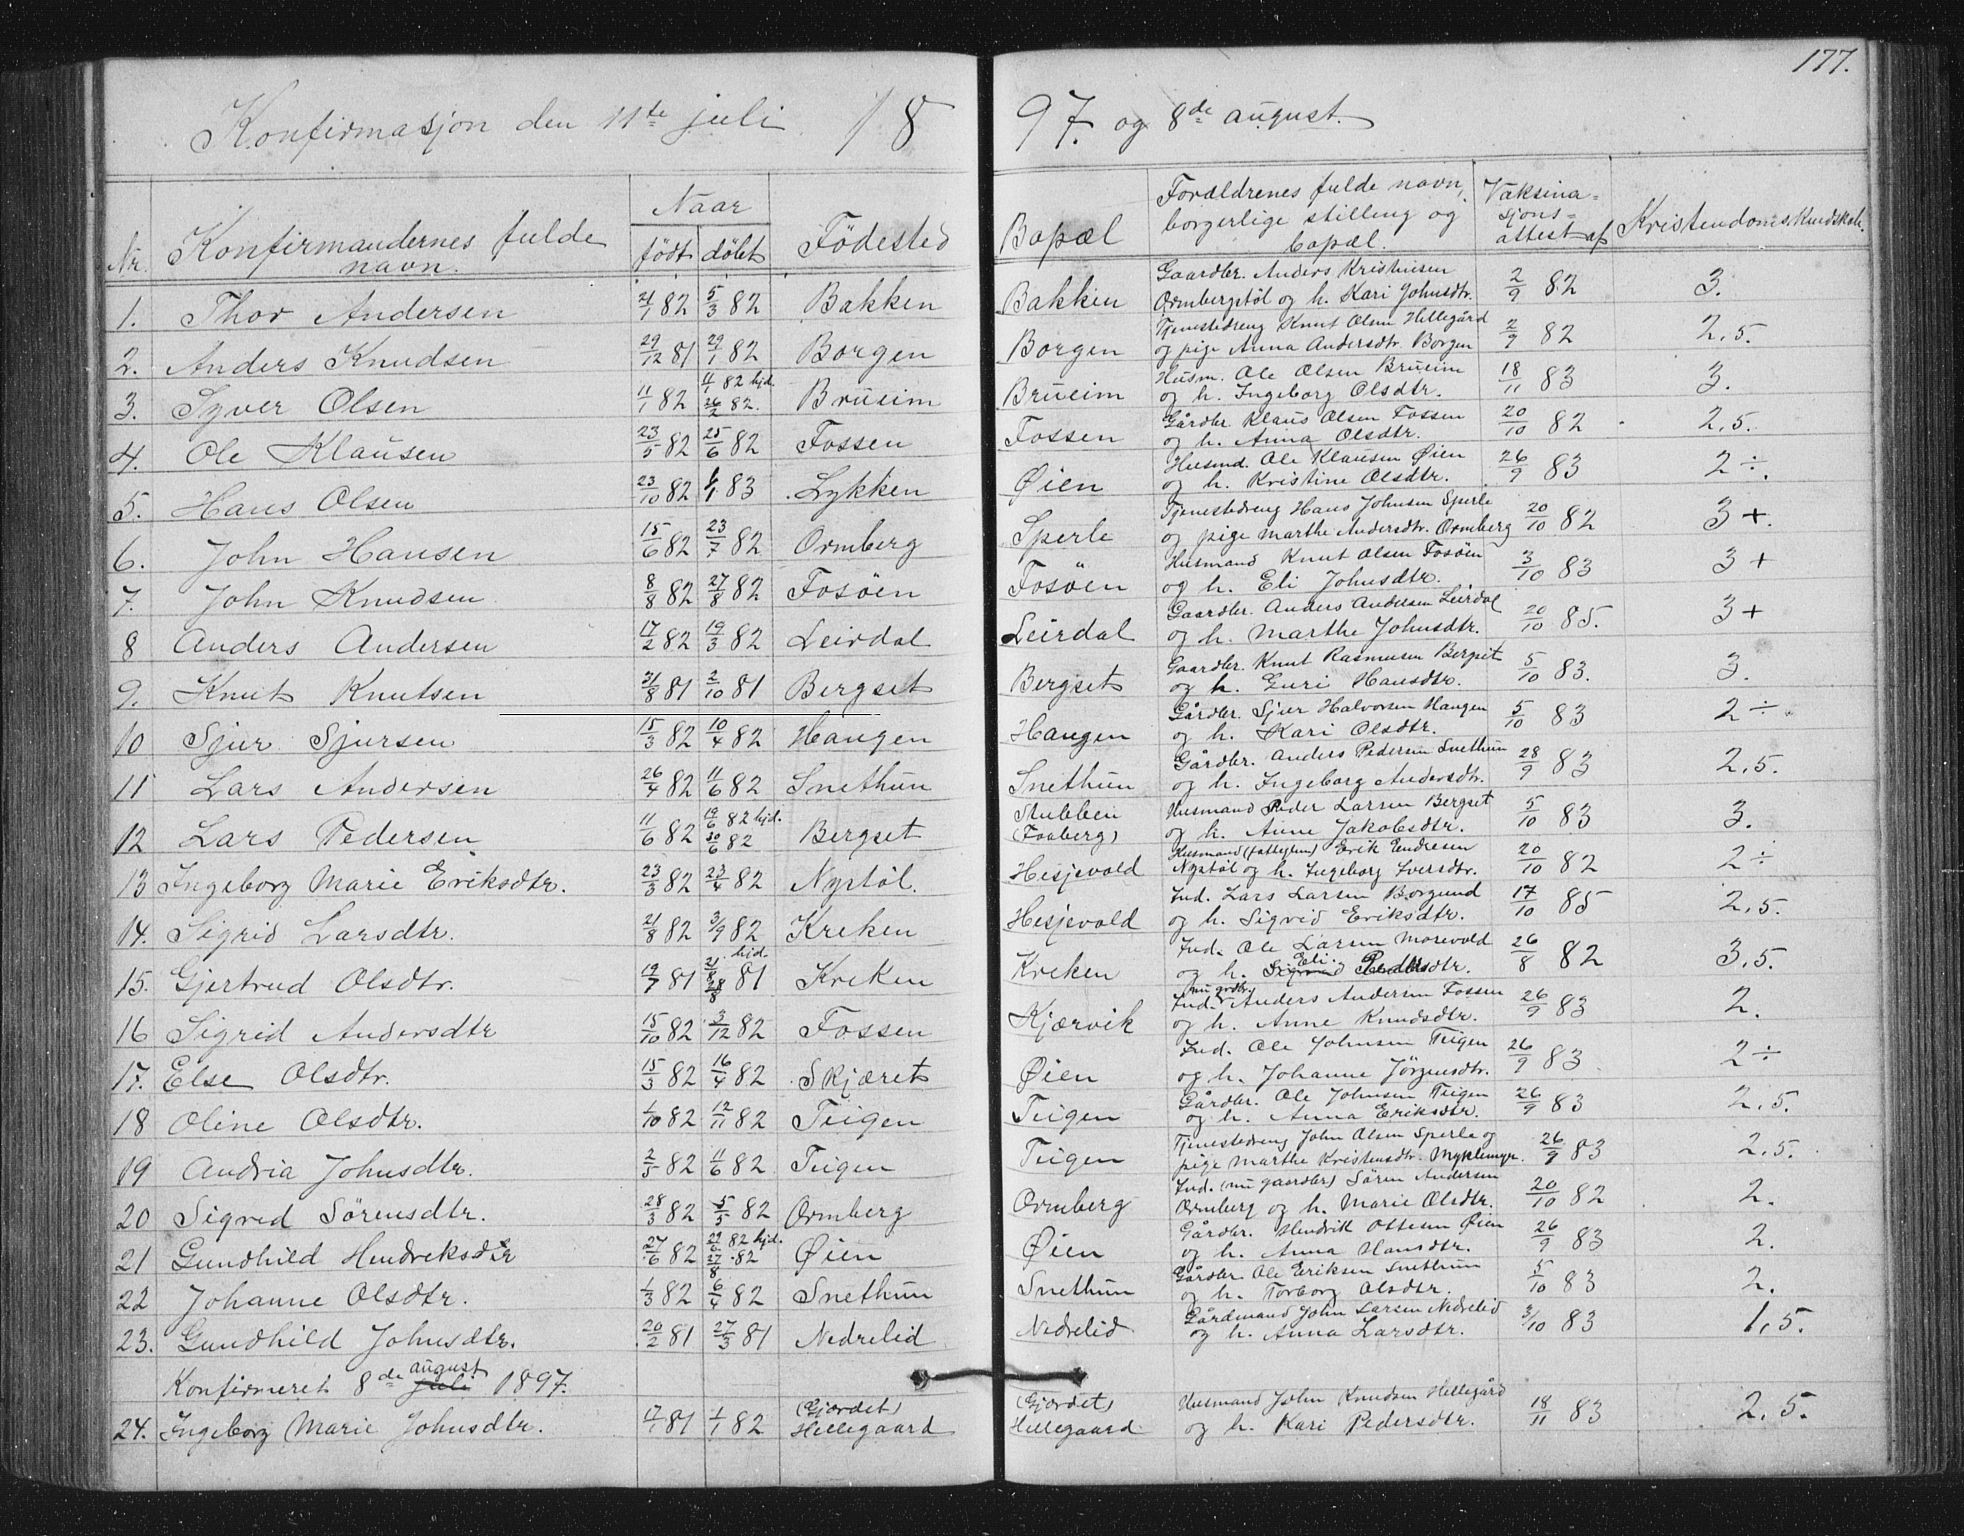 177.
Konfirmasjon den 11te juli 1897. og 8de august.
Nr. Konfirmandernes fulde navn. Naar født døbt Fødested Bopæl Forældrenes fulde navn, borgerlige stilling og bopæl. Vaksinasjonsattest af Kristendomskundskab.
1. Thor Andersen 21/1 82 5/3 82 Bakken Bakken Gaardbr. Anders Kristensen
Ormbergstøl og h. Kari Johnsdtr. 2/9 82 3.
2. Anders Knudsen 29/12 81 29/1 82 Borgen Borgen Tjenestedreng Knut Olsen Hillegård
og pige Anna Andersdtr. Borgen 2/9 82 2,5.
3. Syver Olsen 11/1 82 11/1 82 hjd. 26/2 82. Brueim Brueim Husm. Ole Olsen Brueim
og h. Ingeborg Olsdtr. 18/11 83 3.
4. Ole Klausen 23/5 82 25/6 82 Fossen Fossen Gårdbr Klaus Olsen Fossen
og h. Anna Olsdtr. 20/10 82 2,5.
5. Hans Olsen 23/10 82 6/1 83 Lykken Øien Husmd. Ole Klausen Øien
og h. Kristine Olsdtr. 26/9 83 2÷.
6. John Hansen 15/6 82 23/7 82 Ormberg Sperle Tjenestedreng Hans Johnsen Sperle
og pige Marthe Andersdtr. Ormberg 20/10 82 3+.
7. John Knudsen 8/8 82 27/8 82 Fosøen Fosøen Husmand Knut Olsen Fosøen
og h. Eli Johnsdtr. 3/10 83 3+
8 Anders Andersen 17/2 82 19/3 82 Leirdal Leirdal Gaardbr. Anders Andersen Leirdal
og h. Marthe Johnsdtr. 20/10 85. 3+
9. Knut Knutsen 31/8 81 2/10 81 Bergset Bergset Gaardbr. Knut Rasmusen Bergset
og h. Guri Hansdtr. 5/10 83. 3.
10 Sjur Sjursen 15/3 82 10/4 82 Haugen Haugen Gårdbr. Sjur Halvorsen Haugen
og h. Kari Olsdtr. 5/10 83 2÷.
11 Lars Andersen 26/4 82 11/6 82 Snethun Snethun Gårdbr. Anders Pedersen Snethun
og h. Ingeborg Andersdtr. 28/9 83 2,5.
12 Lars Pedersen 11/6 82 19/6 82 hjd. 30/6 82 Bergset Stubben (Faaberg) Husmand Peder Larsen Bergset
og h. Anne Jakobsdtr. 5/10 83 3.
13 Ingeborg Marie Eriksdtr. 23/3 82 23/4 82 Nystøl. Hesjevold Husmand (fattiglem) Erik Endresen
Nystøl og h. Ingeborg Iversdtr. 20/10 82 2÷
14. Sigrid Larsdtr. 21/8 82 3/9 82 Kreken Hesjevold Ind. Lars Larsen Borgund
og h. Sigrid Eriksdtr. 17/10 85 2,5.
15. Gjertrud Olsdtr. 19/7 81 21/8 hjd. 28/8 81 Kreken Kreken Ind. Ole Larsen Morevold
og h. Eli Pedersdtr. 26/8 82 3,5.
16 Sigrid Andersdtr 15/10 82 3/12 82 Fossen Kjærvik Ind. nu grdbr. Anders Andersen Fossen
og h. Anne Knudsdtr. 26/9 83 2.
17. Else Olsdtr. 15/3 82 16/4 82 Skjæret Øien Ind. Ole Johnsen Teigen
og h. Johanne Jørgensdtr. 26/9 83 2÷
18 Oline Olsdtr. 1/10 82 12/11 82 Teigen Teigen Gårdbr. Ole Johnsen Teigen
og h. Anna Eriksdtr. 26/9 83 2,5.
19 Andria Johnsdtr. 2/5 82 11/6 82 Teigen Teigen Tjenestedreng John Olsen Sperle og
pige Marthe Kristensdtr. Myklemyr. 26/9 83 2,5.
20 Sigred Sørensdtr. 28/3 82 5/5 82 Ormberg Ormberg Ind. (nu gaardbr) Søren Andersen
Ormberg og h. Marie Olsdtr. 20/10 82 2.
21 Gundhild Hendreksdtr 27/6 82 29/6 82 hjd. 27/8 82 Øien Øien Gårdbr. Hendrik Ottesen Øien
og h. Anna Hansdtr. 26/9 83 2.
22 Johanne Olsdtr. 1/3 82 6/4 82 Snethun Snethun Gårdbr. Ole Eriksen Snethun
og h. Torborg Olsdtr. 5/10 83 2.
23. Gundhild Johnsdtr. 20/2 81 27/3 81 Nedrelid Nedrelid Gårdmand John Larsen Nedrelid
og h. Anna Larsdtr. 3/10 83 1,5.
Konfirmeret 8de juli august 1897.
24. Ingeborg Marie Johnsdtr. 17/1 81 1/1 82 (Gjærdet) Hillegaard (Gjærdet) Hillegaard Husmand John Knudsen Hillegård
og h. Kari Pedersdtr. 18/11 83 2,5.